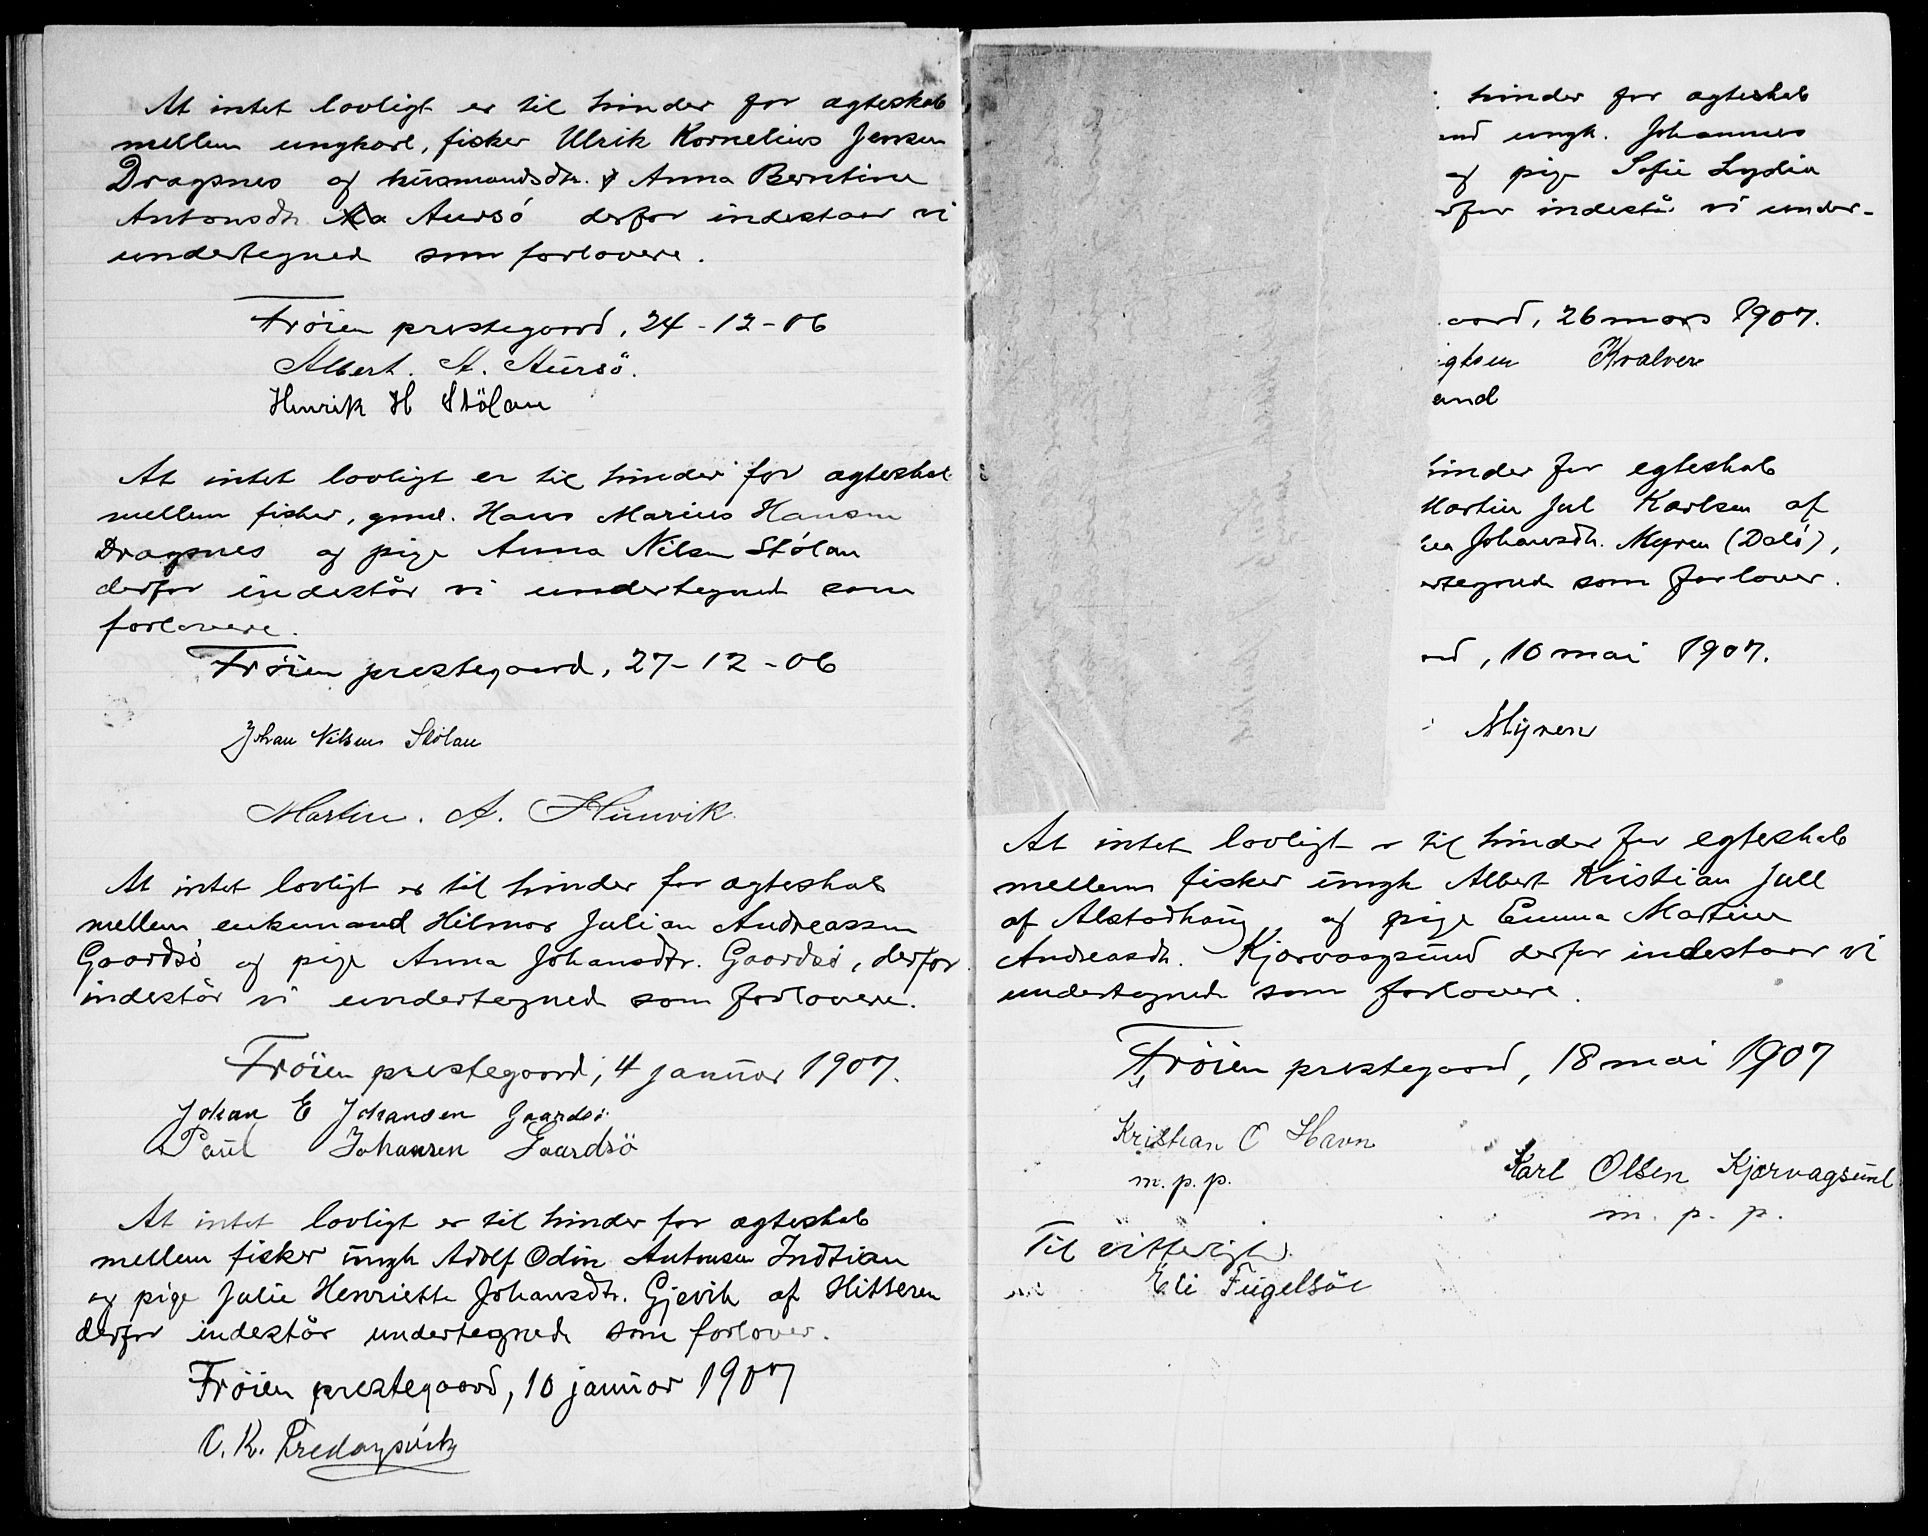 At intet lovligt er til hinder for ægteskab
mellem ungkarl, fisker Ulrik Kornelius Jensen
Dragsnes og husmandsdtr. Anna Berntine
Antonsdtr Aursö derfor indestaar vi
undertegned som forlovere.
Frøien prestegaard, 24-12-06
Albert. A. Aursö.
Henrik H Stölan
At intet lovligt er til hinder for ægteskab
mellem fisker, gmd. Hans Marius Hansen
Dragsnes og pige Anna Nilsen Stölan
derfor indestår vi undertegned som
forlovere.
Frøien prestegaard, 27-12-06
Johan Nilsen Stölan
Martin. A. Hunvik
At intet lovligt er til hinder for ægteskab
mellem enkemand Hilmar Julian Andreassen
Gaardsö og pige Anna Johansdtr. Gaardsö, derfor
indestår vi undertegned som forlovere.
Frøien prestegaard, 4 januar 1907.
Johan E Johansen Gaardsö
Paul Johansen Gaardsö
At intet lovligt er til hinder for ægteskab
mellem fisker ungk Adolf Odin Antonsen Indtian
og pige Julie Henriette Johansdtr. Gjevik af Hitteren
derfor indestår undertegnede som forlover.
Frøien prestegaard, 10 januar 1907
O. K. Fredagsvik
hinder for ægteskab
and ungk. Johannes
og pige Sofie Lydia
rfor indestår vi under-
aard, 26 mars 1907.
igtsen Kvalven
and
hinder for egteskab
Martin Jul Karlsen af
Johansdtr. Myren (Dalö),
ertegned som forlover.
rd, 10 mai 1907.
Myren
At intet lovligt er til hinder for egteskab
mellem fisker ungk Albert Kristian Jull
af Alstadhaug og pige Emma Martine
Andreasdtr. Kjærvaagsund derfor indestaar vi
undertegnede som forlovere.
Frøien prestegaard, 18 mai 1907
Kristian O Havn
m.p.p.
Karl Olsen Kjærvagsund
m. p. p.
Til vitterlighed
Eli Fugelsöe